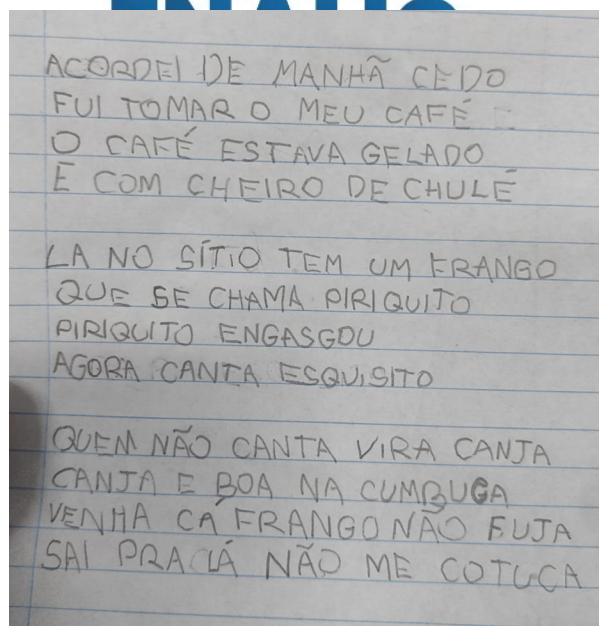 ACORDEI DE MANHÃ CEDO
FUI TOMAR O MEU CAFÉ
O CAFÉ ESTAVA GELADO
E COM CHEIRO DE CHULÉ
LA NO SÍTIO TEM UM FRANGO
QUE SE CHAMA PIRIQUITO
PIRIQUITO ENGASGOU
AGORA CANTA ESQUISITO
QUEM NÃO CANTA VIRA CANJA
CANJA E BOA NA CUMBUGA
VENHA CÁ FRANGO NÃO FUJA
SAI PRA LÁ NÃO ME COTUCA